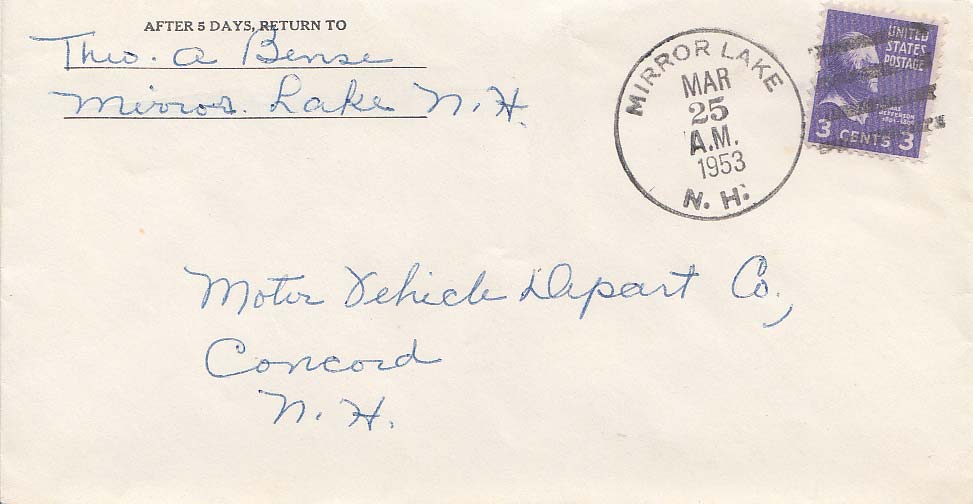 AFTER 5 DAYS, RETURN TO
Theo. A Bense
Mirror. Lake N.H.
MIRROR LAKE
MAR
25
A.M.
1953
N. H.
UNITED
STATES
POSTAGE
JEFFERSON
3 CENTS 3
Motor Vehicle Depart Co.,
Concord
N. H.